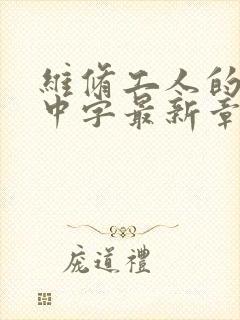 維脩工人的
中字最新章
龐道禮